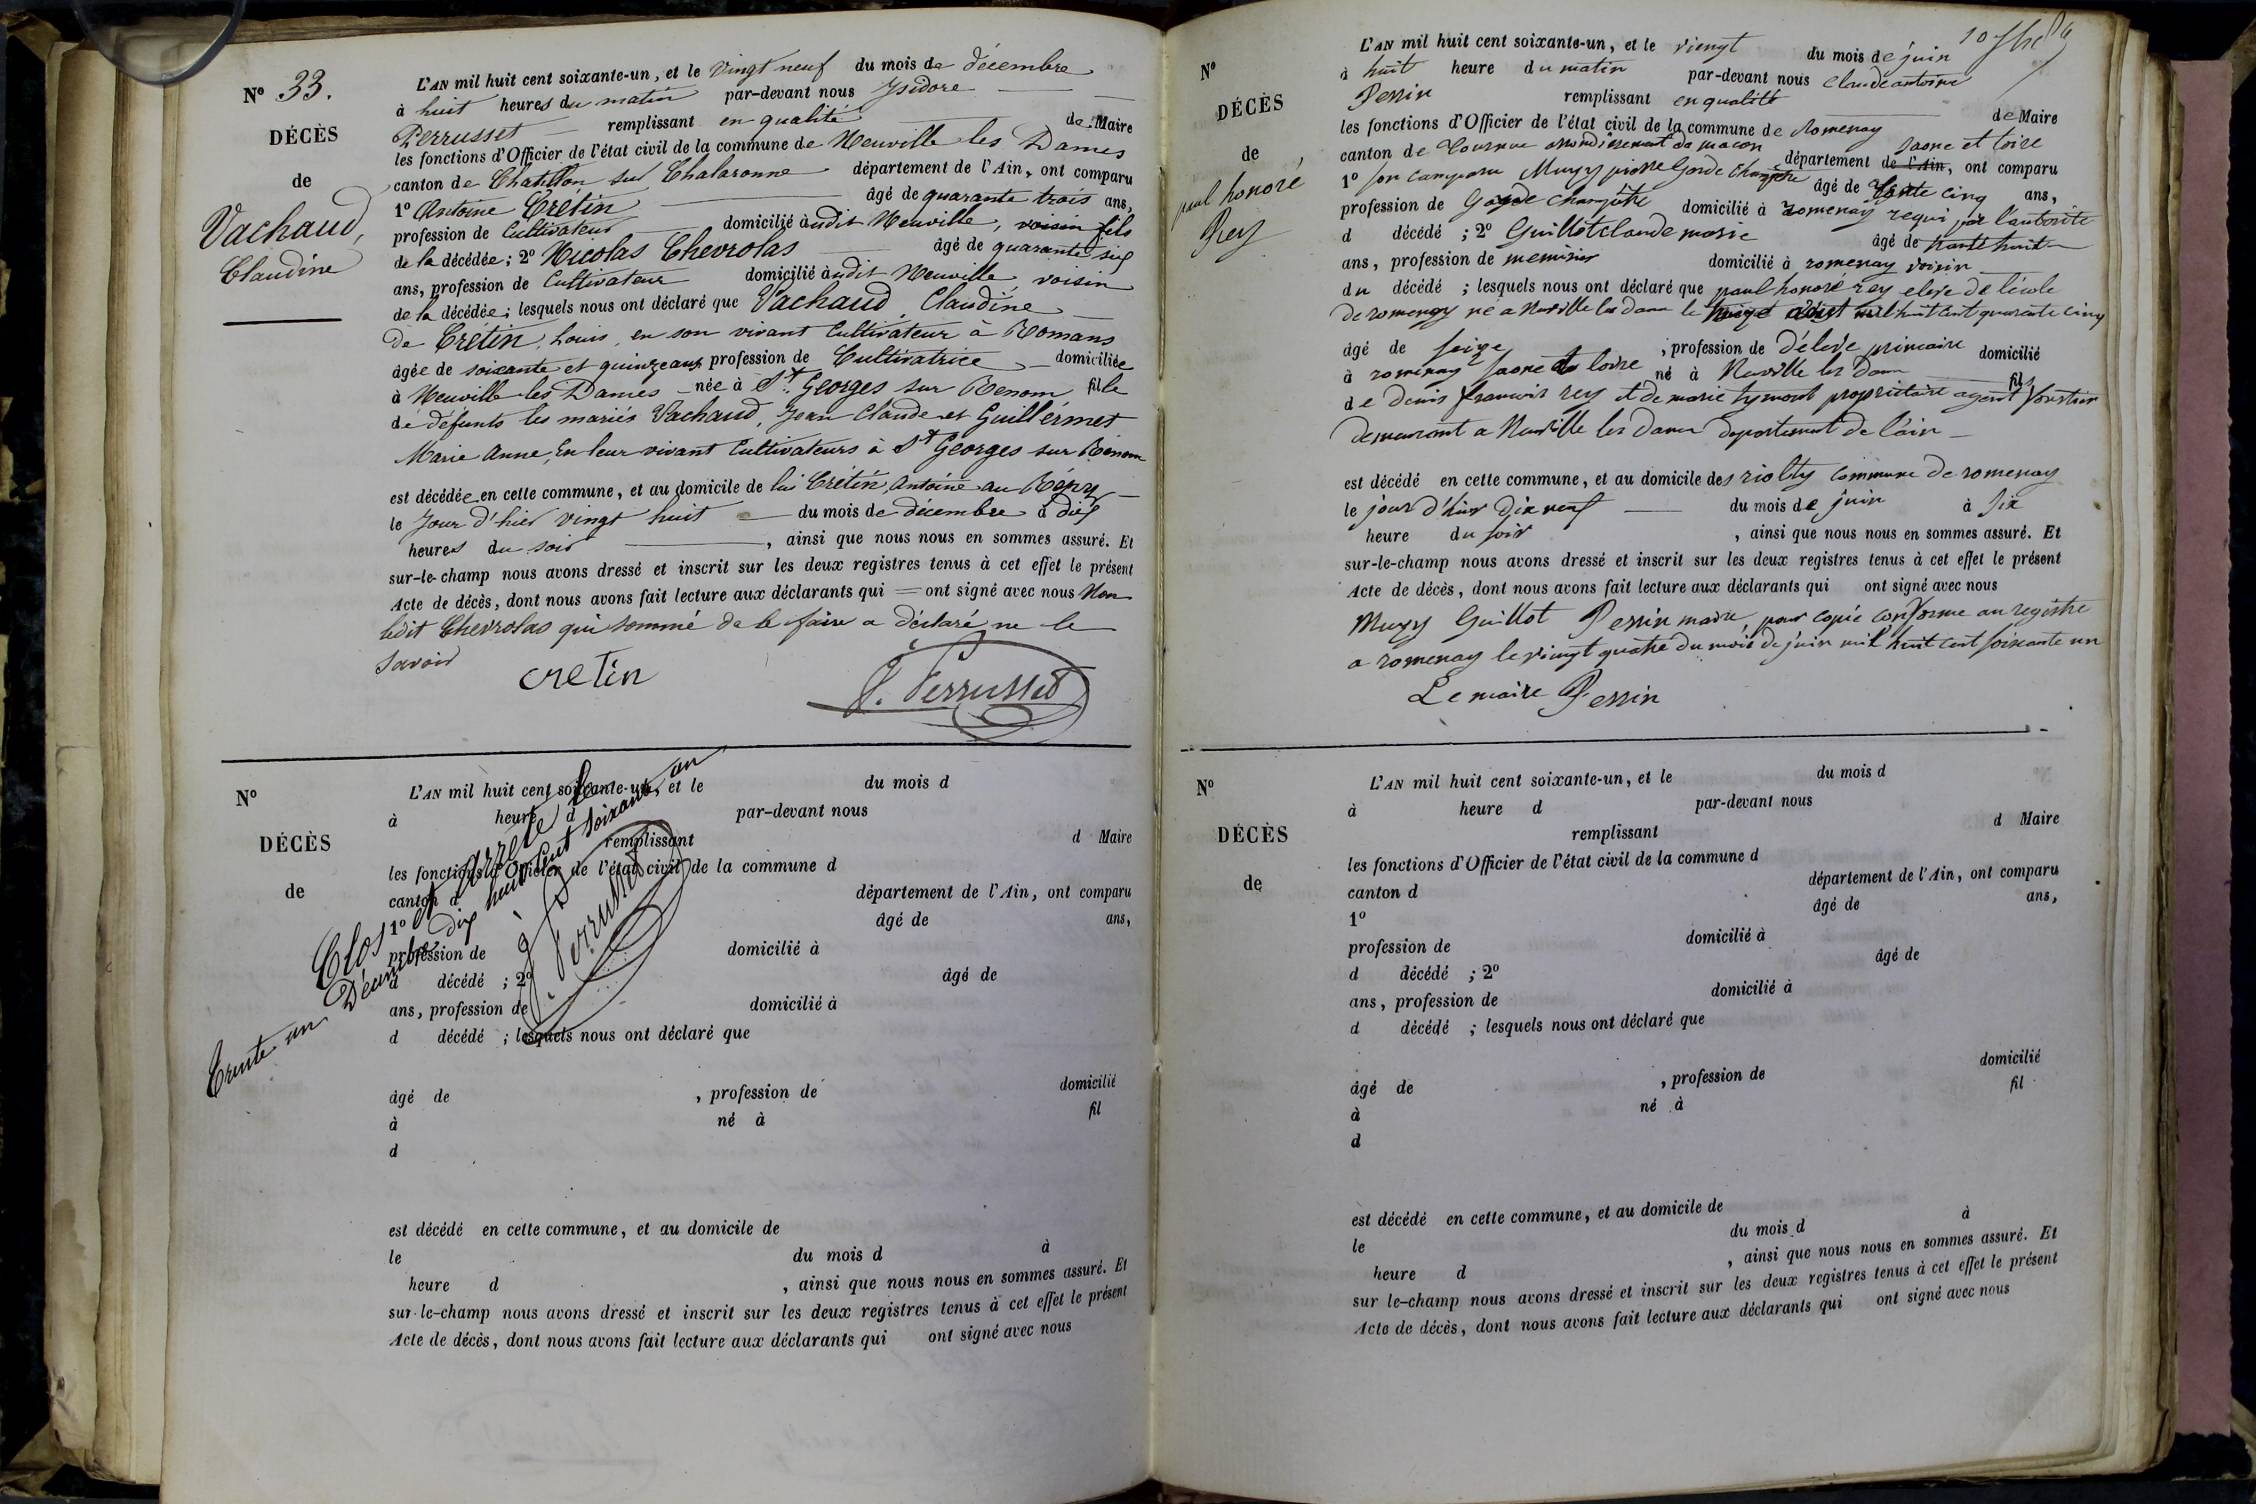 N° 33.
DÉCÈS
de
Vachaud,
Claudine
L'AN mil huit cent soixante-un, et le vingt neuf du mois de décembre
à huit heures du matin par-devant nous Isidore
Perrusset remplissant en qualité de Maire
les fonctions d'Officier de l'état civil de la commune de Neuville les Dames
canton de Chatillon sur Chalaronne département de l'Ain, ont comparu
1° Antoine Crétin âgé de quarante trois ans,
profession de Cultivateur domicilié àudit Neuville, voisin fils
de la décédée; 2° Nicolas Chevrolas âgé de quarante six
ans, profession de Cultivateur domicilié àudit Neuville voisin
de la décédée; lesquels nous ont déclaré que Vachaud, Claudine
de Crétin, Louis, en son vivant Cultivateur à Romans
âgée de soixante et quinze ans, profession de Cultivatrice domiciliée
à Neuville les Dames née à St Georges sur Renom fille
de défunts les mariés Vachaud, Jean Claude et Guillermet
Marie Anne, En leur vivant Cultivateurs à St Georges sur Renom
est décédée en cette commune, et au domicile de lui Crétin, Antoine au
le Jour d'hier vingt huit du mois de décembre à dix
heures du soir, ainsi que nous nous en sommes assuré. Et
sur-le-champ nous avons dressé et inscrit sur les deux registres tenus à cet effet le présent
Acte de décès, dont nous avons fait lecture aux déclarants qui = ont signé avec nous Non
ledit Chevrolas qui sommé de le faire a déclaré ne le
savoir
cretin
J. Perrusset
N°
DÉCÈS
de
L'AN mil huit cent soixante-un, et le du mois d
à heure d par-devant nous
remplissant d Maire
les fonctions d'Officier de l'état civil de la commune d
canton d département de l'Ain, ont comparu
1° âgé de ans,
profession de domicilié à
d décédé ; 2° âgé de
ans, profession de domicilié à
d décédé ; lesquels nous ont déclaré que
âgé de , profession de domicilié
à né à fil
d
est décédé en cette commune, et au domicile de
le du mois d à
heure d , ainsi que nous nous en sommes assuré. Et
sur-le-champ nous avons dressé et inscrit sur les deux registres tenus à cet effet le présent
Acte de décès, dont nous avons fait lecture aux déclarants qui ont signé avec nous
Clos et arrêté le
Trente un Décembre dix huit cent soixante un
J. Perrusset
N°
DÉCÈS
de
paul honoré
Rey
L'AN mil huit cent soixante-un, et le viengt du mois de juin
à huit heure du matin par-devant nous Claude antoine
Perrin remplissant en qualité de Maire
les fonctions d'Officier de l'état civil de la commune de Romenay
canton de Tournue arrondissement de macon département de l'Ain, ont comparu
saone et loire
1° son comparu Mugy pierre Garde champêtre âgé de trente cinq ans,
profession de Garde champêtre domicilié à romenay requi par l'autorité
d décédé ; 2° Guillot claude marie âgé de trante huit
ans, profession de menuisier domicilié à romenay voisin
du décédé ; lesquels nous ont déclaré que paul honoré rey eleve de l'école
de romenay né a Neuville les dame le août mil huit cent quarante cinq
âgé de seize , profession de d'éleve primaire domicilié
à romenay saone et loire né à Neuville les dame fils
de denis francois rey et de marie propriétaire agent
demeurant a Neuville les dames departement de l'ain
est décédé en cette commune, et au domicile des commune de romenay
le jour d'hier dix neuf du mois de juin à six
heure du soir , ainsi que nous nous en sommes assuré. Et
sur-le-champ nous avons dressé et inscrit sur les deux registres tenus à cet effet le présent
Acte de décès, dont nous avons fait lecture aux déclarants qui ont signé avec nous
Mugy Guillot Perrin maire, pour copie conforme au registre
a romenay le viengt quatre du mois de juin mil huit cent soixante un
Le maire Perrin
N°
DÉCÈS
de
L'AN mil huit cent soixante-un, et le du mois d
à heure d par-devant nous
remplissant d Maire
les fonctions d'Officier de l'état civil de la commune d
canton d département de l'Ain, ont comparu
1° âgé de ans,
profession de domicilié à
d décédé ; 2° âgé de
ans, profession de domicilié à
d décédé ; lesquels nous ont déclaré que
âgé de , profession de domicilié
à né à fil
d
est décédé en cette commune, et au domicile de
le du mois d à
heure d , ainsi que nous nous en sommes assuré. Et
sur le-champ nous avons dressé et inscrit sur les deux registres tenus à cet effet le présent
Acte de décès, dont nous avons fait lecture aux déclarants qui ont signé avec nous